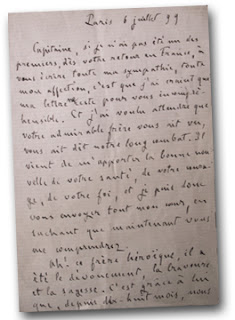 Paris 6 juillet 99
Capitaine, si je n'ai pas été un des
premiers, dès votre retour en France, à
vous écrire toute ma sympathie, toute
mon affection, c'est que j'ai craint que
ma lettre reste pour vous incompré-
hensible. Et j'ai voulu attendre que
votre admirable frère vous ait vu,
vous ait dit notre long combat. Il
vient de m'apporter la bonne nou-
velle de votre santé, de votre coura-
ge, de votre foi, et je puis donc
vous envoyer tout mon cœur, en
sachant que maintenant vous
me comprendrez.
Ah! ce frère héroïque, il a
été le dévouement, la bravoure
et la sagesse. C'est grâce à lui
que, depuis dix-huit mois, nous